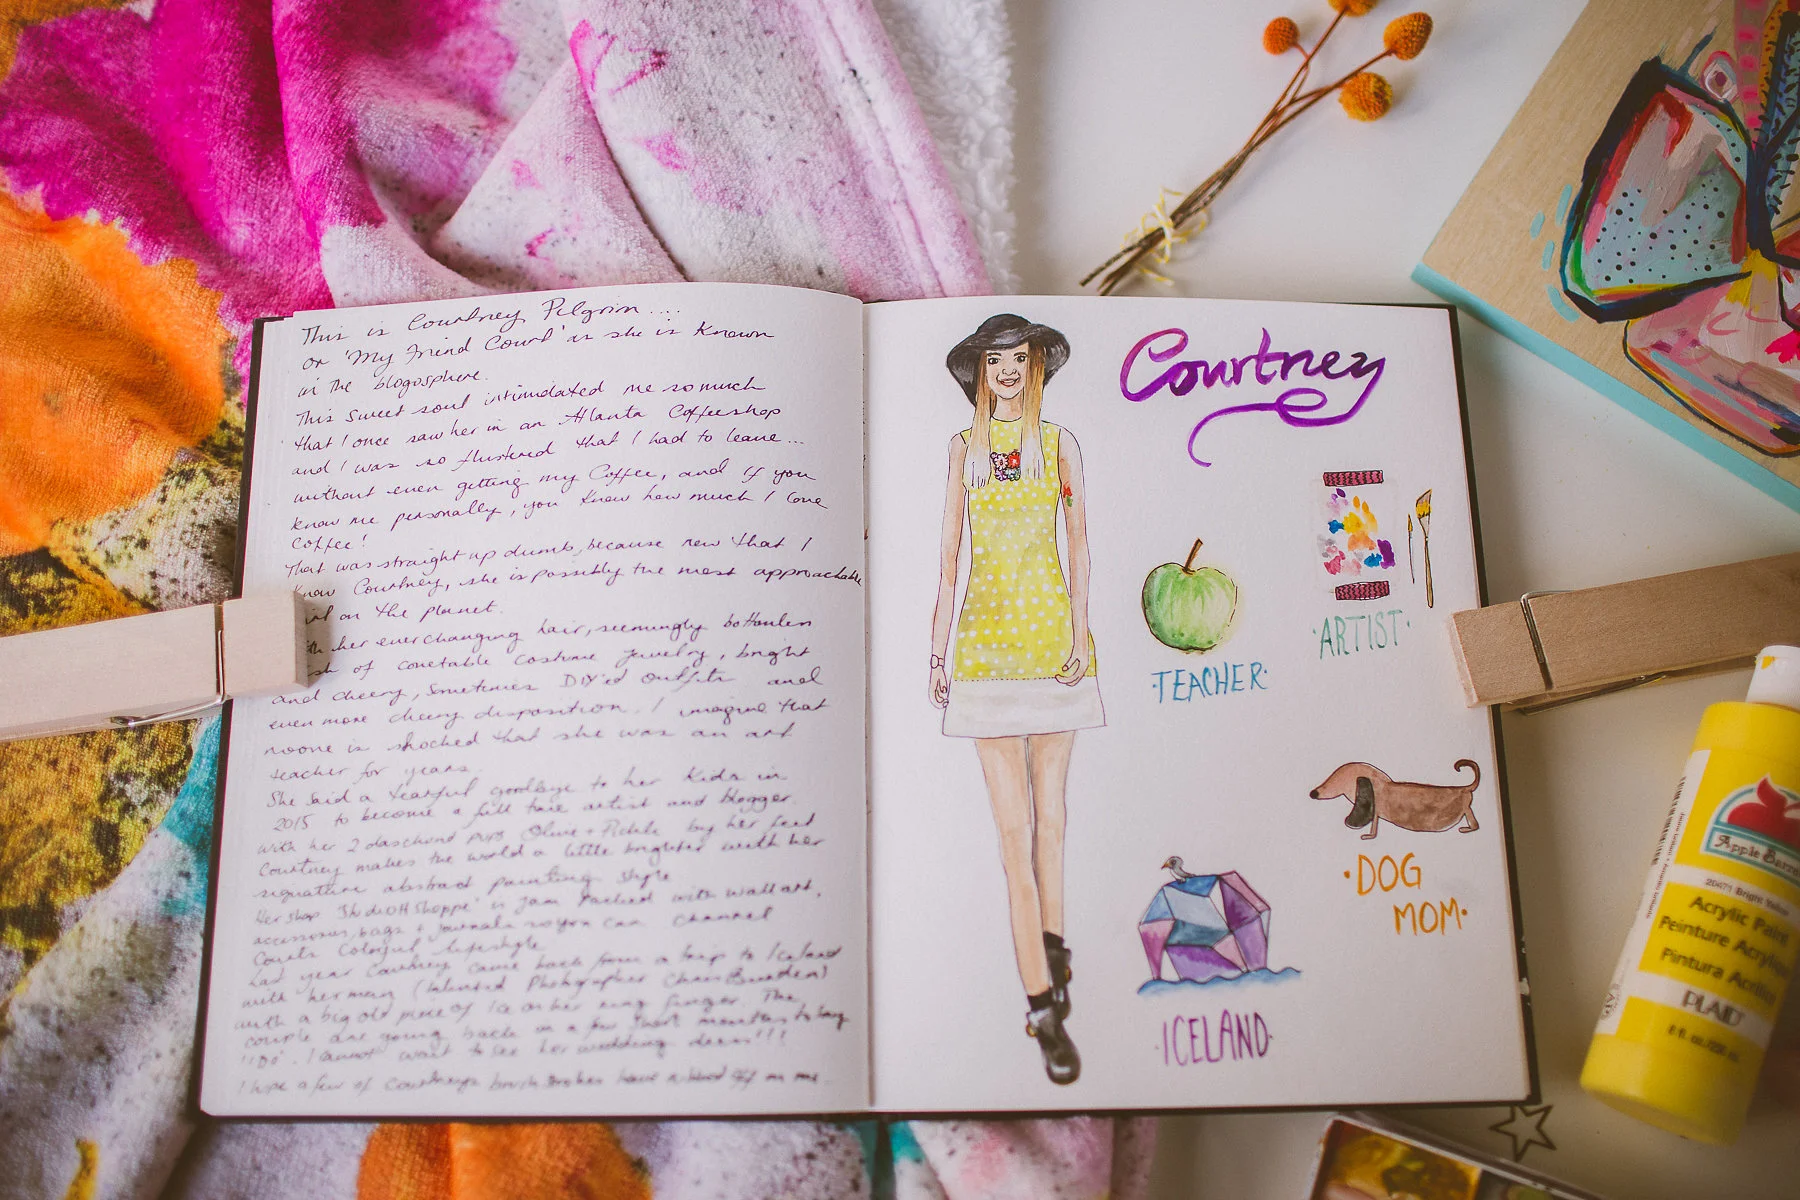 This is Courtney Pilgrim....
or 'My Friend Court' as she is known
in the blogosphere.
This sweet soul intimidated me so much
that I once saw her in an Atlanta Coffeeshop
and I was so flustered that I had to leave...
without even getting my Coffee, and if you
know me personally, you know how much I love
coffee!
That was straight up dumb, because now that I
know Courtney, she is possibly the most approachable
on the planet.
her everchanging hair, seemingly bottomless
of covetable costume jewelry, bright
and cheery, sometimes DIY'ed outfits and
even more cheery disposition. I imagine that
noone is shocked that she was an art
teacher for years.
She said a tearful goodbye to her kids in
2015 to become a full time artist and blogger.
With her 2 daschund pups Olive + Pickle by her feet
Courtney makes the world a little brighter with her
signature abstract painting style.
Her shop is jam packed with wall art,
accessories, bags + journals so you can channel
Courts Colorful lifestyle
Last year Courtney came back from a trip to Iceland
with her man (talented Photographer
with a big old piece of ice on her ring finger. The
couple are going back in a few short months to say
"I Do". I cannot wait to see her wedding dress!!!
I hope a few of Courtneys brush strokes have rubbed off on me
Courtney
·ARTIST·
·TEACHER·
·DOG
MOM·
·ICELAND·
Apple Barrel
20471 Bright Yellow
Acrylic Paint
Peinture Acrylique
Pintura Acrílica
PLAID